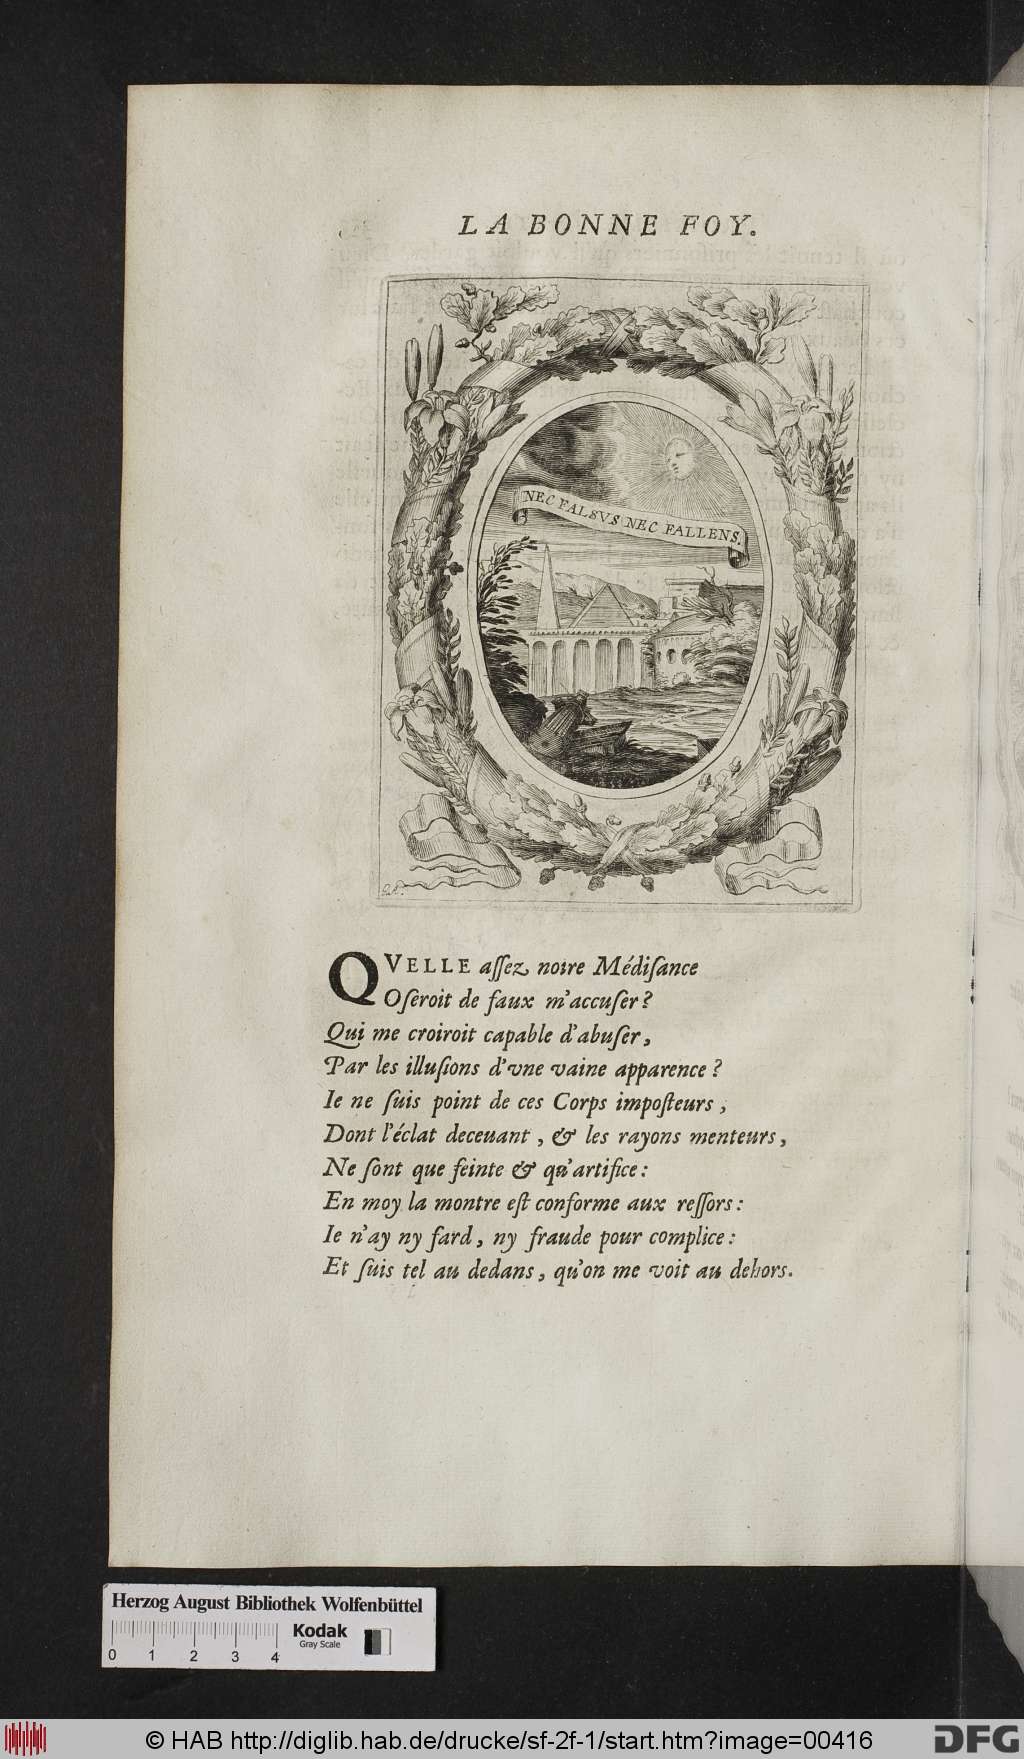 LA BONNE FOY.
NEC FALSVS NEC FALLENS.
QVELLE aſſez noire Médiſance
Oſeroit de faux m'accuſer?
Qui me croiroit capable d'abuſer,
Par les illuſions d'vne vaine apparence?
Ie ne ſuis point de ces Corps impoſteurs,
Dont l'éclat deceuant, & les rayons menteurs,
Ne ſont que feinte & qu'artifice:
En moy la montre eſt conforme aux reſſors:
Ie n'ay ny fard, ny fraude pour complice:
Et ſuis tel au dedans, qu'on me voit au dehors.
Herzog August Bibliothek Wolfenbüttel
Kodak
Gray Scale
0 1 2 3 4
© HAB http://diglib.hab.de/drucke/sf-2f-1/start.htm?image=00416
DFG